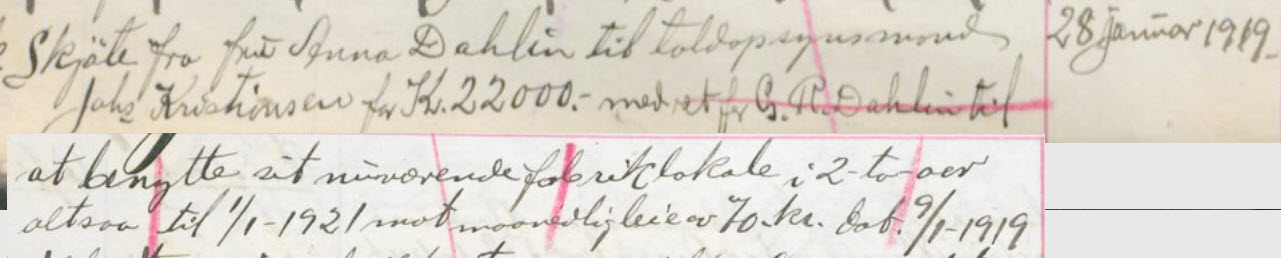 Skjöte fra frü Anna Dahlin til toldopsynsmand 28 januar 1919.
Johs Kristiansen for Kr. 22000.- med ret for G. R. Dahlin til
at benytte sit nüværende fabriklokale i 2-to-aar
altsaa til 1/1-1921 mot maanedlig leie av 70.kr. Dat. 9/1-1919